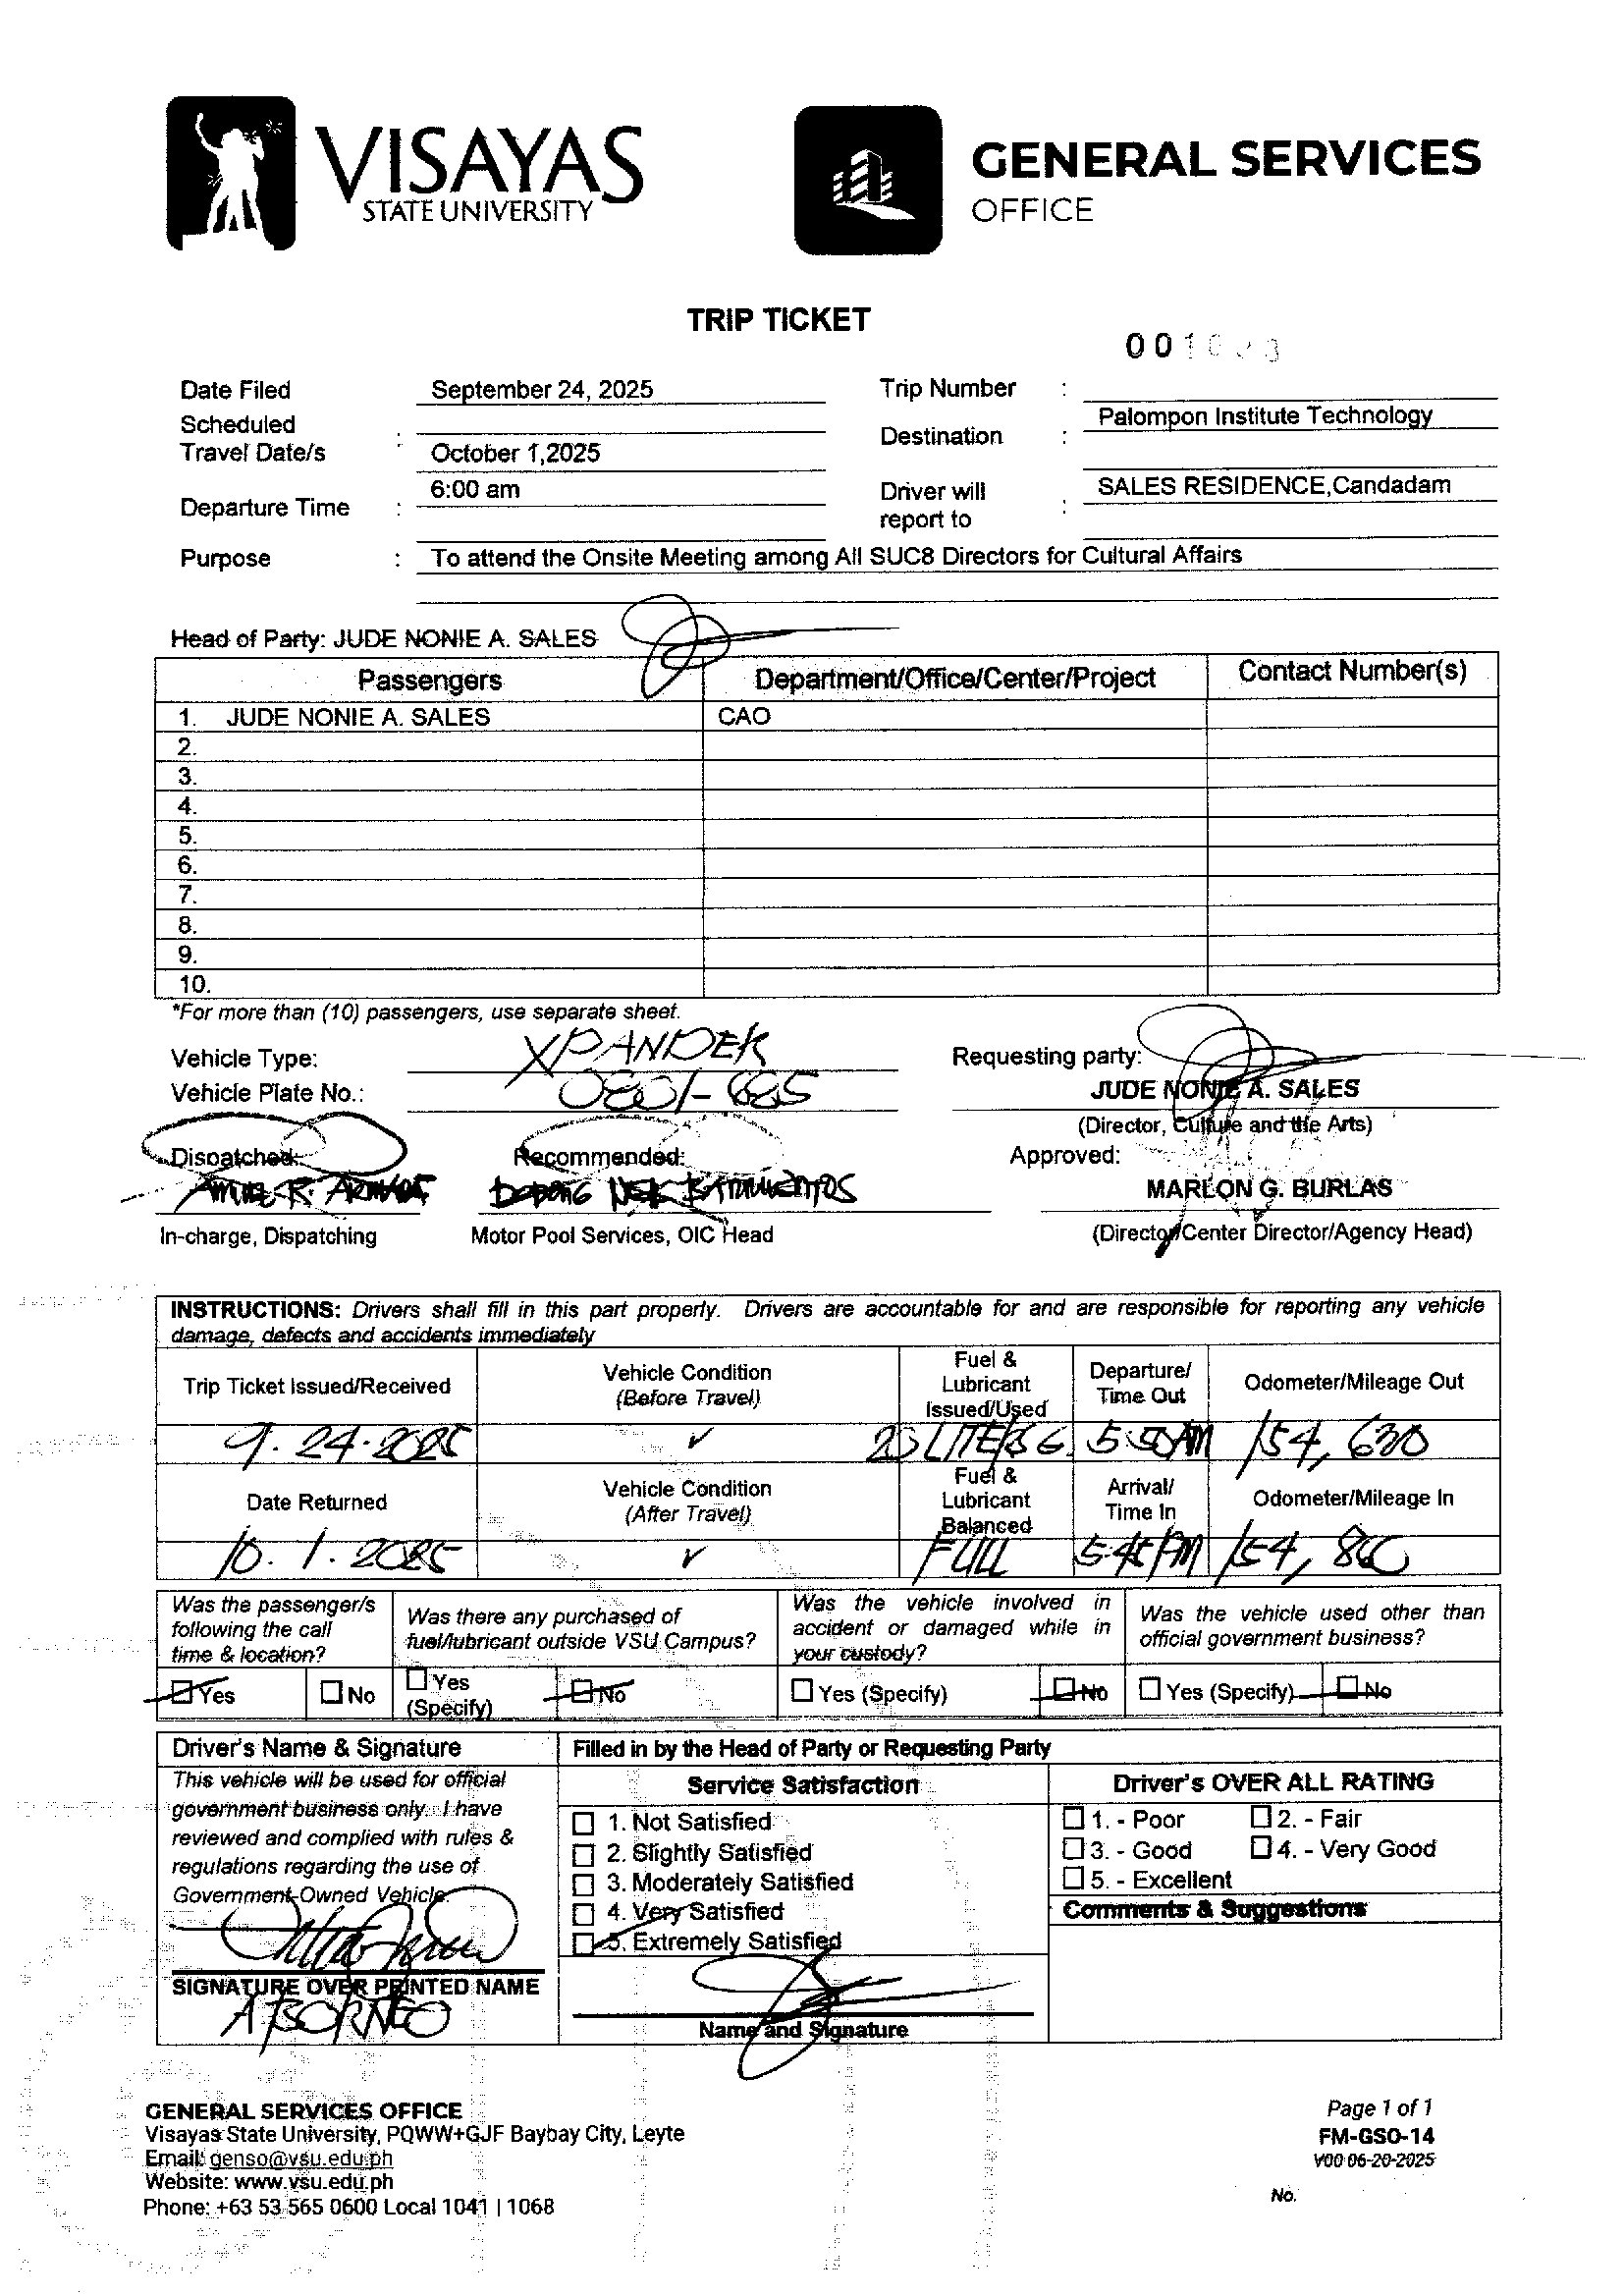 VISAYAS
STATE UNIVERSITY
GENERAL SERVICES
OFFICE
TRIP TICKET
Date Filed September 24, 2025 Trip Number :
Scheduled Travel Date/s : October 1,2025 Destination : Palompon Institute Technology
Departure Time : 6:00 am Driver will report to : SALES RESIDENCE,Candadam
Purpose : To attend the Onsite Meeting among All SUC8 Directors for Cultural Affairs
Head of Party: JUDE NONIE A. SALES
Passengers Department/Office/Center/Project Contact Number(s)
1. JUDE NONIE A. SALES CAO
2.
3.
4.
5.
6.
7.
8.
9.
10.
*For more than (10) passengers, use separate sheet.
Vehicle Type: XPANDER Requesting party:
Vehicle Plate No.: JUDE NONIE A. SALES
(Director, Culture and the Arts)
Dispatched: Recommended: Approved:
MARLON G. BURLAS
In-charge, Dispatching Motor Pool Services, OIC Head (Director/Center Director/Agency Head)
INSTRUCTIONS: Drivers shall fill in this part properly. Drivers are accountable for and are responsible for reporting any vehicle
damage, defects and accidents immediately
Trip Ticket Issued/Received Vehicle Condition (Before Travel) Fuel & Lubricant Issued/Used Departure/ Time Out Odometer/Mileage Out
9.24.2025 ✓ 5:50AM 154,630
Date Returned Vehicle Condition (After Travel) Fuel & Lubricant Balanced Arrival/ Time In Odometer/Mileage In
10.1.2025 ✓ FULL 5:45PM
Was the passenger/s following the call time & location? Was there any purchased of fuel/lubricant outside VSU Campus? Was the vehicle involved in accident or damaged while in your custody? Was the vehicle used other than official government business?
Yes No Yes (Specify) No Yes (Specify) No Yes (Specify) No
Driver's Name & Signature Filled in by the Head of Party or Requesting Party
This vehicle will be used for official Service Satisfaction Driver's OVER ALL RATING
government business only. I have 1. Not Satisfied 1. - Poor 2. - Fair
reviewed and complied with rules & 2. Slightly Satisfied 3. - Good 4. - Very Good
regulations regarding the use of 3. Moderately Satisfied 5. - Excellent
Government-Owned Vehicle. 4. Very Satisfied Comments & Suggestions
5. Extremely Satisfied
SIGNATURE OVER PRINTED NAME
A BORNEO
Name and Signature
GENERAL SERVICES OFFICE Page 1 of 1
Visayas State University, PQWW+GJF Baybay City, Leyte FM-GSO-14
Email: genso@vsu.edu.ph V00 06-20-2025
Website: www.vsu.edu.ph
Phone: +63 53 565 0600 Local 1041 | 1068 No.